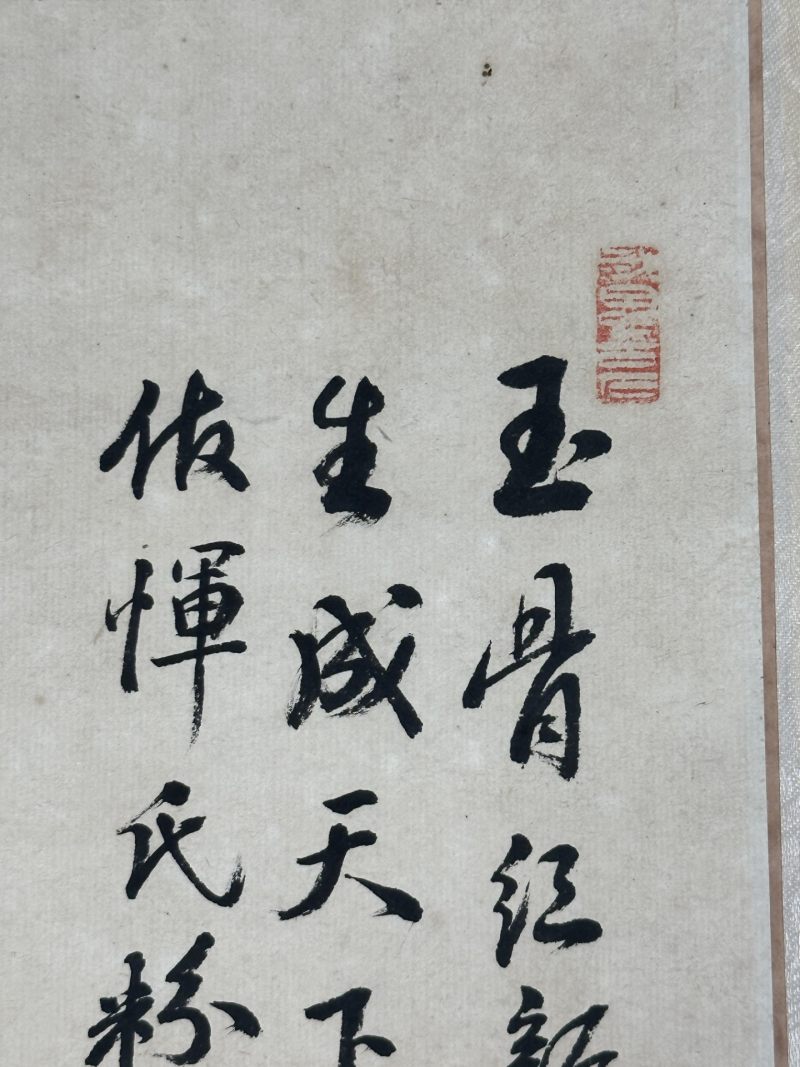 玉骨紅
生成天下
仿惲氏粉